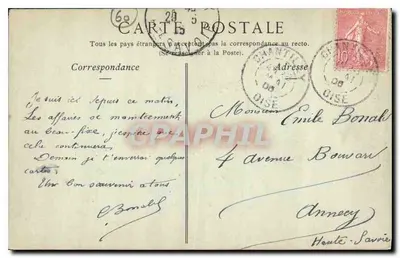 60
CARTE POSTALE
Tous les pays étrangers n'acceptent pas la correspondance au recto.
(Se renseigner à la Poste).
Correspondance
Adresse
CHANTILLY
OISE
CHANTILLY
OISE
Je suis ici depuis ce matin,
Les affaires se maintiennent
au beau-fixe, j'espère que
cela continuera.
Demain je t'enverrai quelques
cartes
Un bon souvenir à tous
Monsieur Emile
4 avenue
Annecy
Haute-Savoie
CPARAMA.COM